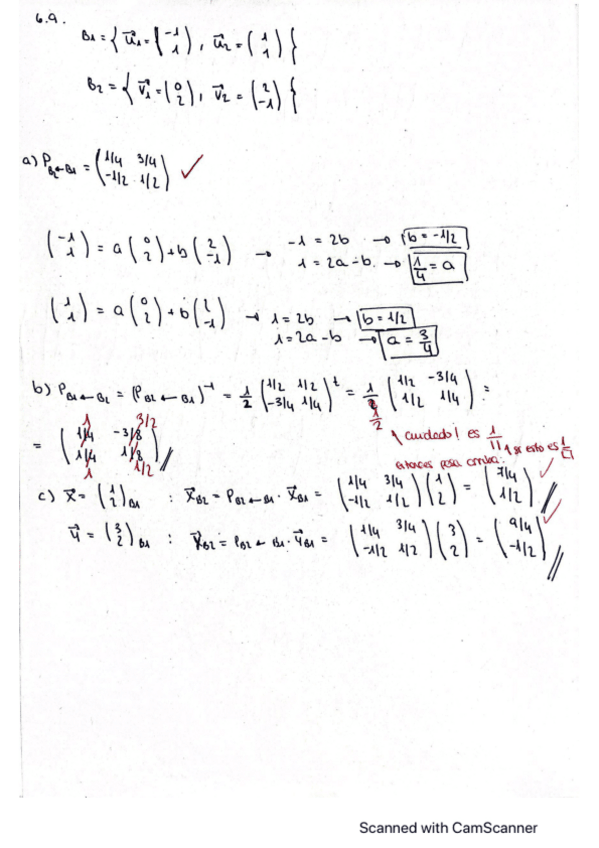 6.9.
B1 = { u⃗1 = (-1 1), u⃗2 = (1 1) {
B2 = { v⃗1 = (0 2), v⃗2 = (2 -1) {
a) P B2←B1 = (1/4 3/4 -1/2 1/2) ✓
(-1 1) = a (0 2) + b (2 -1) → -1 = 2b → b = -1/2
1 = 2a - b → 1/4 = a
(1 1) = a (0 2) + b (2 -1) → 1 = 2b → b = 1/2
1 = 2a - b → a = 3/4
b) P B1←B2 = (P B2←B1)^-1 = 1/2 (1/2 1/2 -3/4 1/4)^t = 1/2 (1/2 -3/4 1/2 1/4) =
1/2
1 3/2
= (1/4 -3/8 1/4 1/8) //
1 1/2
¡cuidado! es 1/|| y si esto es
entonces pasa arriba.
c) x⃗ = (1 2)B1 : x⃗B2 = P B2←B1 · x⃗B1 = (1/4 3/4 -1/2 1/2) (1 2) = (7/4 1/2) // ✓
y⃗ = (3 2)B1 : y⃗B2 = P B2←B1 · y⃗B1 = (1/4 3/4 -1/2 1/2) (3 2) = (9/4 -1/2) // ✓
Scanned with CamScanner